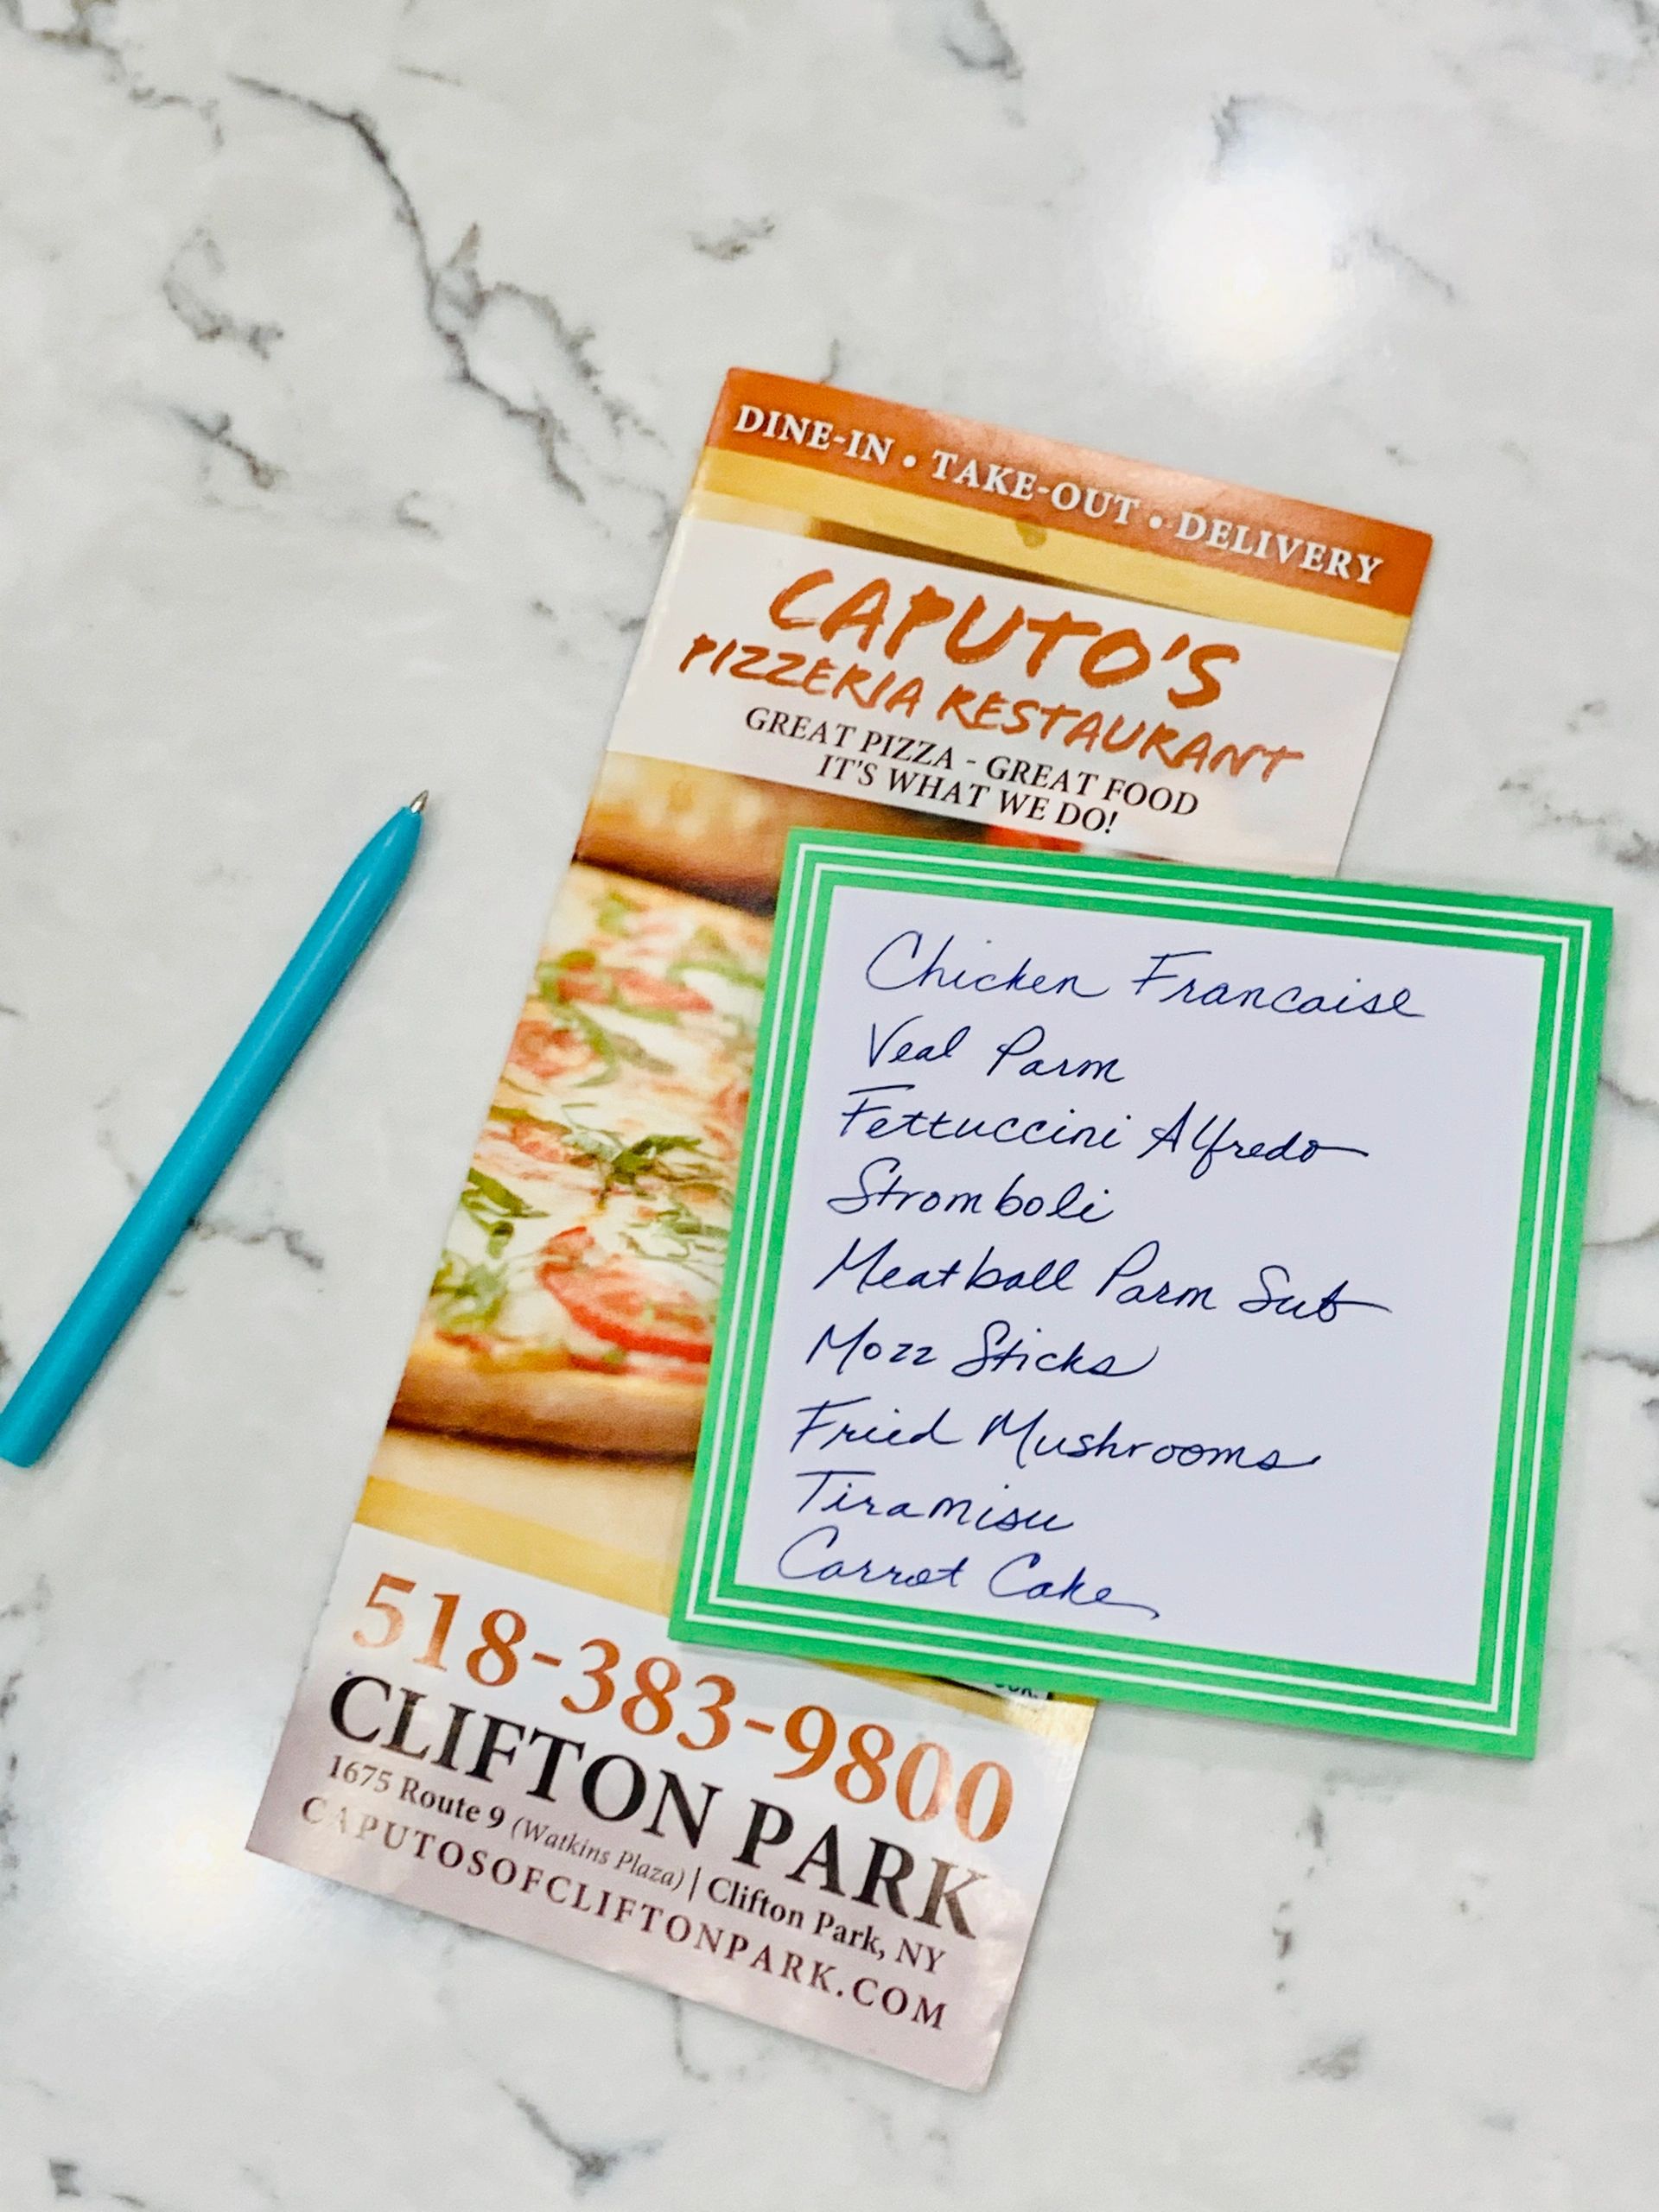 DINE-IN • TAKE-OUT • DELIVERY
CAPUTO'S
PIZZERIA RESTAURANT
GREAT PIZZA - GREAT FOOD
IT'S WHAT WE DO!
Chicken Francaise
Veal Parm
Fettuccini Alfredo
Stromboli
Meatball Parm Sub
Mozz Sticks
Fried Mushrooms
Tiramisu
Carrot Cake
518-383-9800
CLIFTON PARK
1675 Route 9 (Watkins Plaza) | Clifton Park, NY
CAPUTOSOFCLIFTONPARK.COM